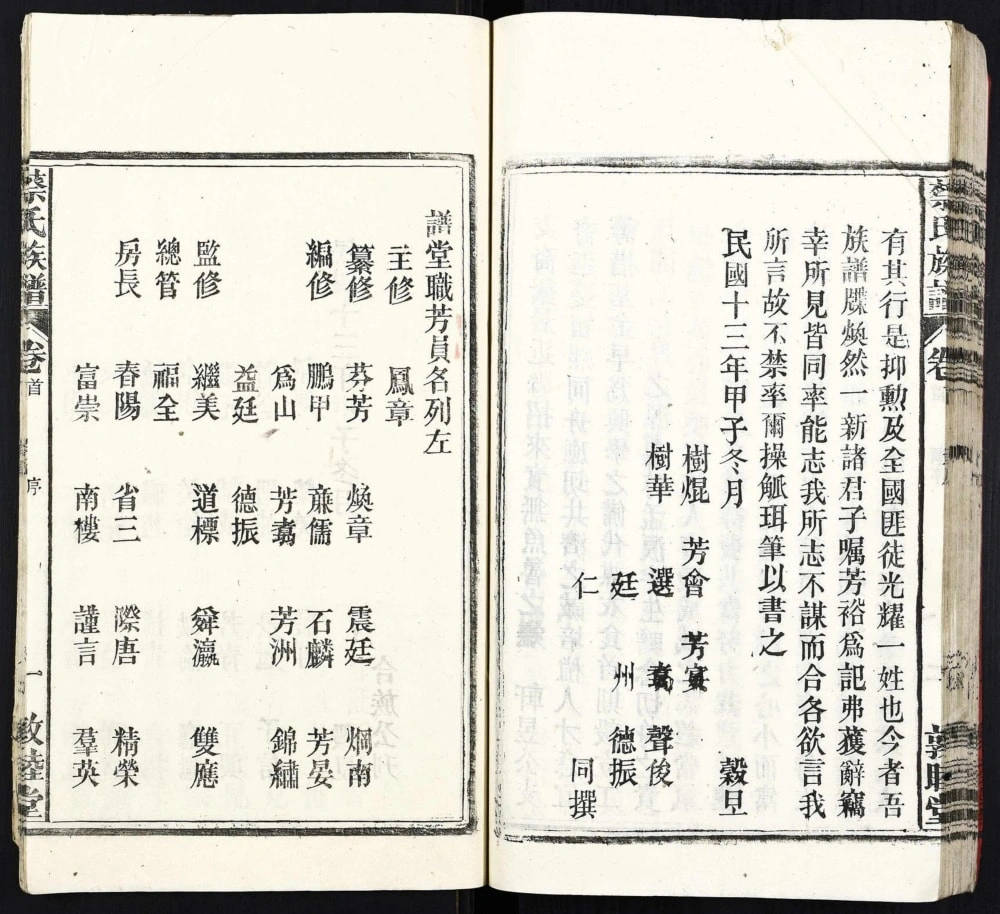 蔡氏族譜 卷
敦睦堂
有其行是抑勳及全國匪徒光耀一姓也今者吾
族譜牒煥然一新諸君子嘱芳裕爲記弗蒦辭竊
幸所見皆同率能志我所志不謀而合各欲言我
所言故不禁率爾操觚珥筆以書之
民國十三年甲子冬月 穀旦
樹焜 芳會 芳宾
樹華 選 翥 聲俊
廷 州 德振
仁 同撰
譜堂職芳員名列左
主修 鳳章
纂修 芬芳 煥章 震廷 炯南
編修 鵬甲 蓮儒 石麟 芳晏
爲山 芳翥 芳洲 錦繡
益廷 德振
監修 繼美 道標 舜瀛 雙應
總管 福全
房長 春陽 省三 際唐 精榮
富崇 南樓 謹言 羣英
蔡氏族譜 卷首 序 一 敦睦堂